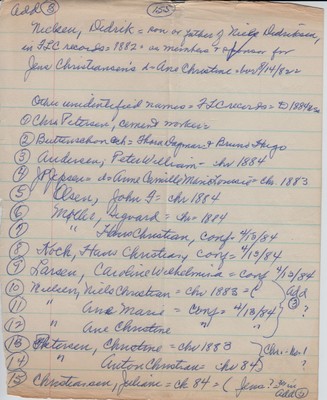 Add ③ 155
Nielsen, Didrik = son or father of Niels Didriksen,
in FLC records = 1882 = as members + sponsor for
Jens Christiansen's d = Ane Christine = bo 9/14/82
Other unidentified names = FLC records =
① Chris Petersen, cement worker =
② Buttenschon
③ Andersen, Peter William = chr 1884
④ Jepsen = d = Anna Camille = chr. 1883
⑤ Olsen, John = chr 1884
⑥ Möller, Sigvard = chr = 1884
⑦ " Hans Christian, conf = 4/13/84
⑧ Koch, Hans Christian, conf = 4/13/84
⑨ Larsen, Caroline Wilhelmina = conf 4/13/84
⑩ Nielsen, Niels Christian = chr 1883 = (
⑪ " Ane Marie = conf = 4/13/84 ) Add ③ ?
⑫ " Ane Christine " " ?
⑬ Petersen, Christine = chr 1883 )
⑭ " Anton Christian = chr 84 ) Chris = No 1 ?
⑮ Christiansen, Juliane = ch 84 = ( Jens? in Add